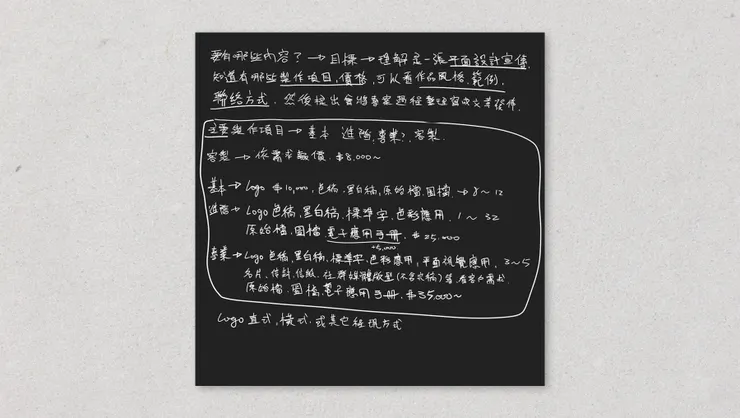 要有哪些內容？→目標→理解是一張平面設計宣傳,
知道有哪些製作項目,價格,可以看作品風格,範例,
聯絡方式. 然後提出會將專案過程整理寫成文章發佈.
主要製作項目→基本.進階.專業?.客製.
客製→依需求報價.$8,000~
基本→Logo $10,000,色稿.黑白稿,原始檔.圖檔.→8~12
進階→Logo色稿,黑白稿,標準字.色彩應用. 1~32
原始檔.圖檔 電子應用手冊. $25.000
+5,000
專業→Logo色稿,黑白稿,標準字.色彩應用,平面視覺應用. 3~5
名片.信封.信紙.社群媒體版型(不含文稿)等.看客戶需求.
原始檔.圖檔 電子應用手冊.$35.000~
Logo直式,橫式.或其它組現方式